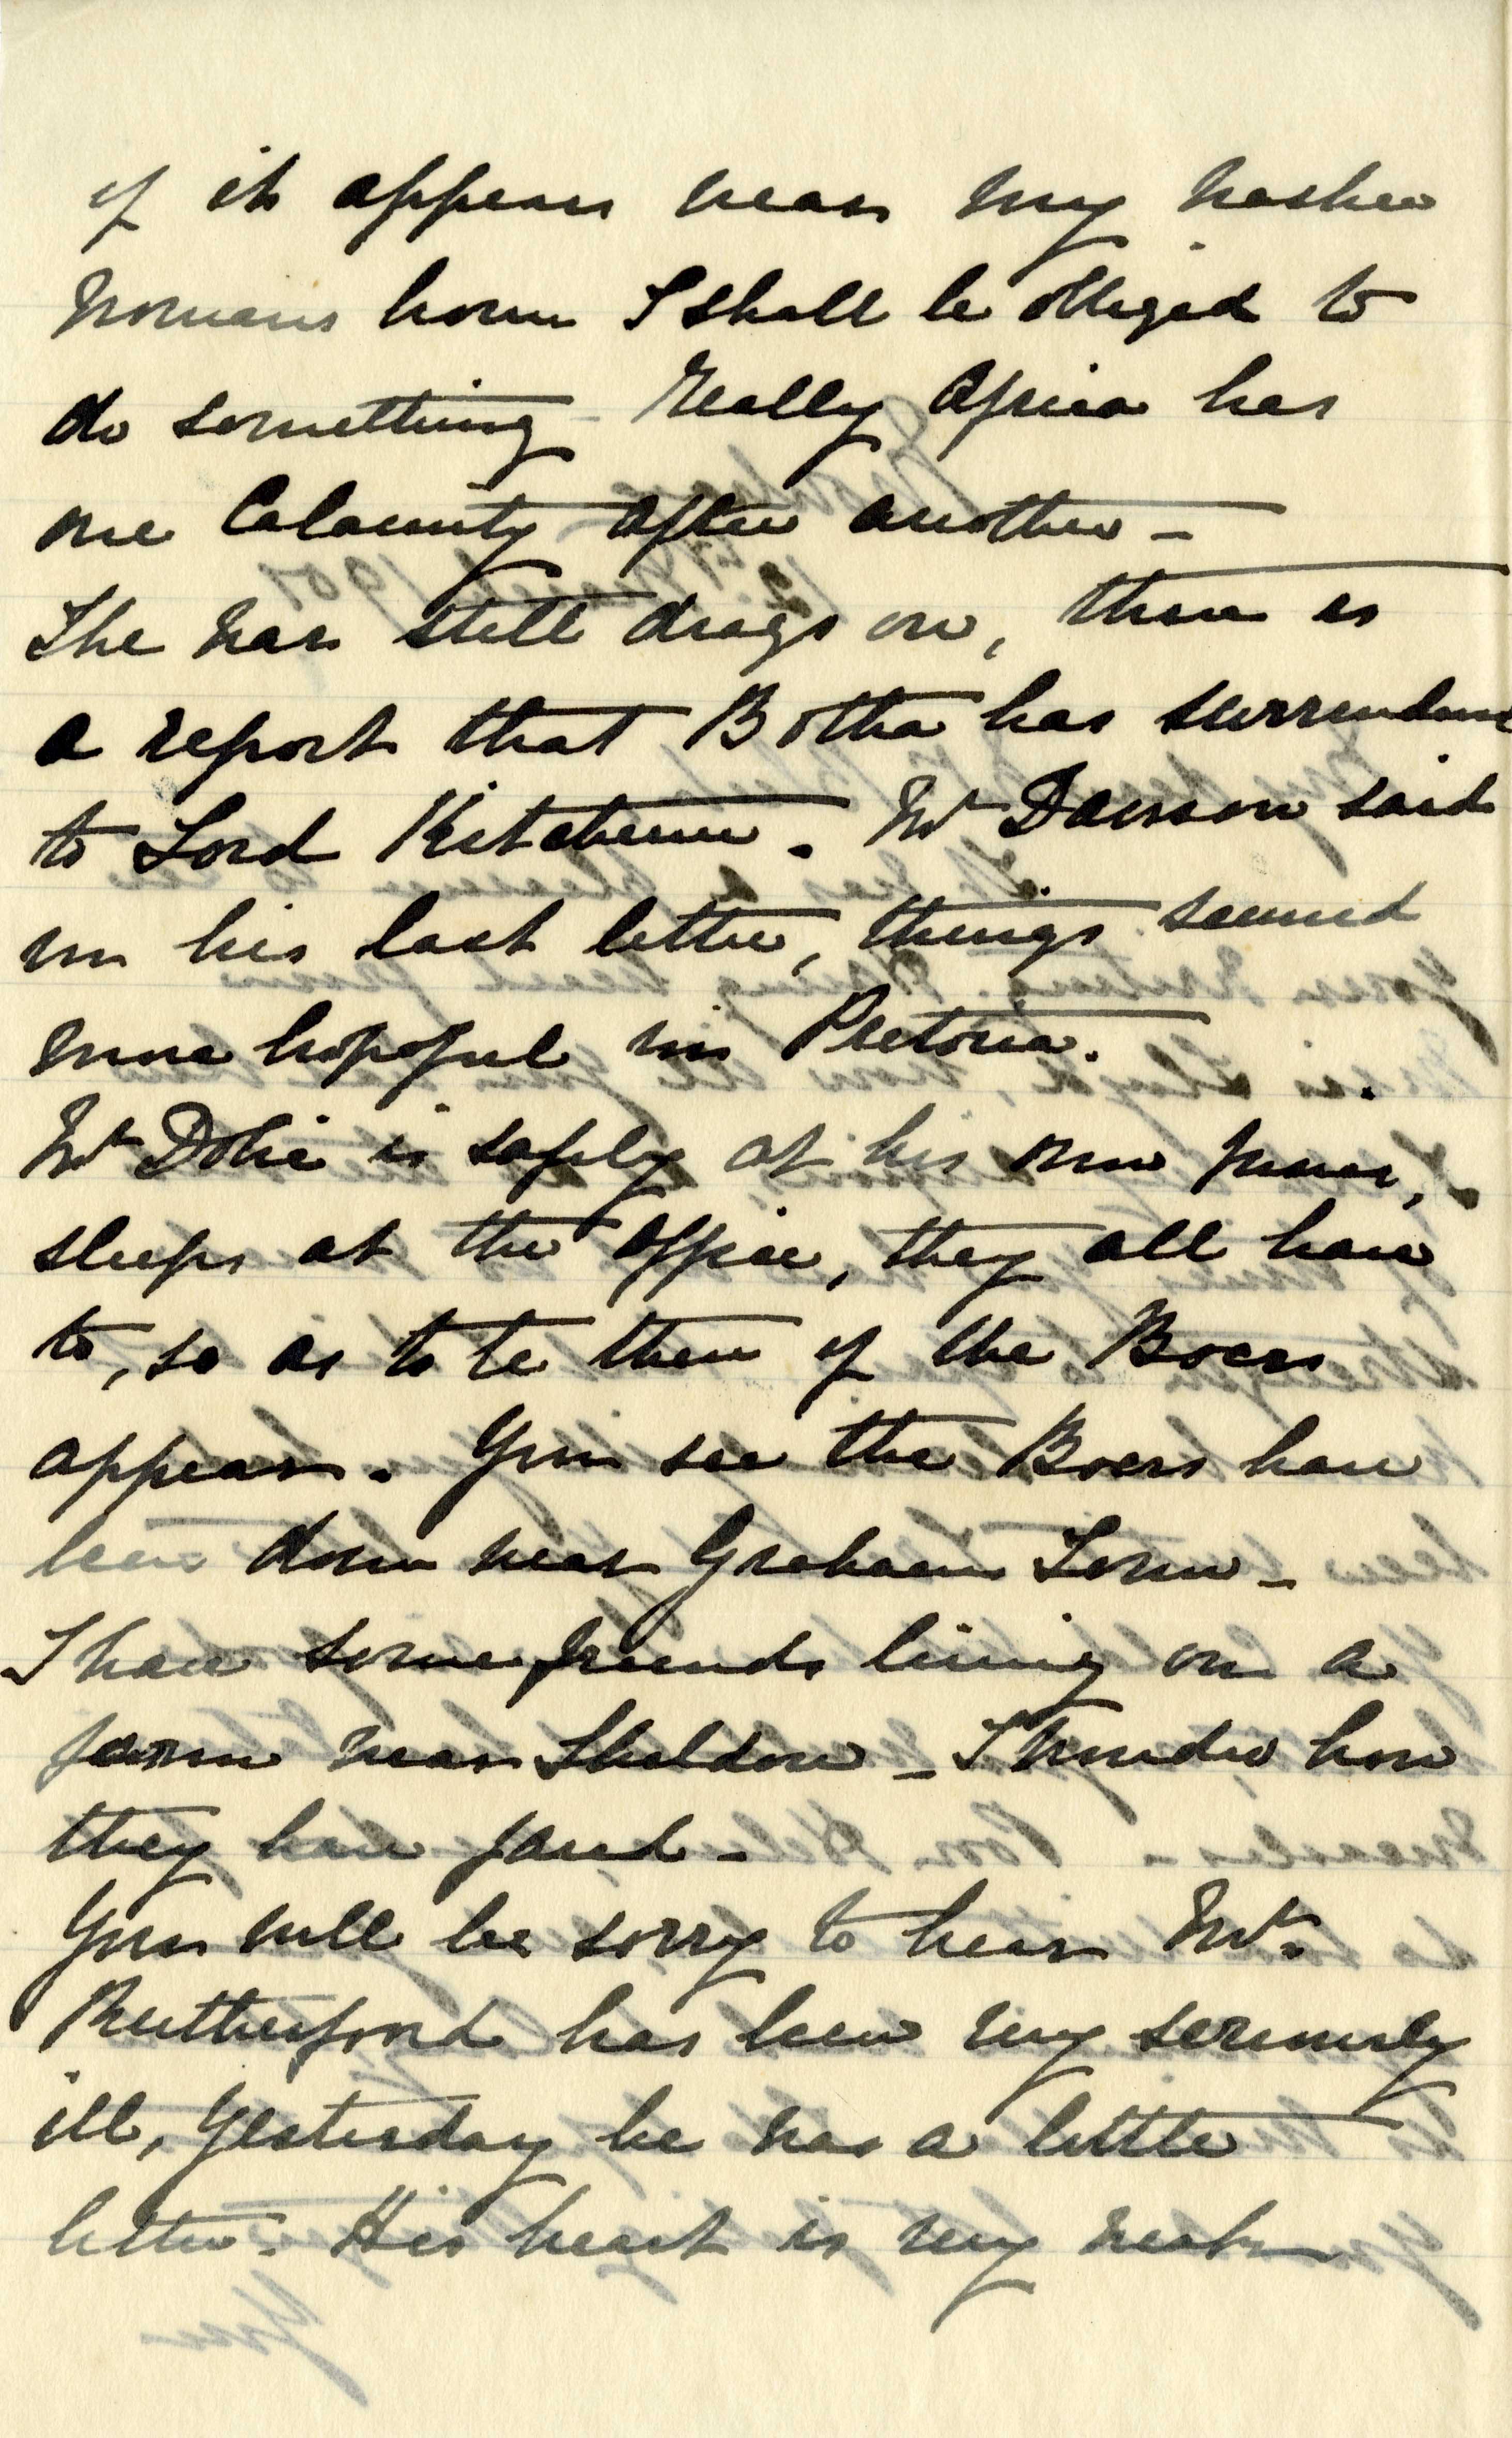 if it appears near my washer
womans home I shall be obliged to
do something - Really Africa has
one Calamity after another -
The war still drags on, there is
a report that Botha has surrendered
to Lord Kitchener. Mr Dawson said
in his last letter, things seemed
more hopeful in Pretoria.
Mr Dobie is safely at his own
sleeps at the Office, they all have
to, so as to be there if the Boers
appear. You see the Boers have
been down near Grahams Town -
I have some friends living on a
farm near Sheldon - I wonder how
they have fared -
You will be sorry to hear Mr.
Rutherford has been very seriously
ill, Yesterday he was a little
better. His heart is very weak